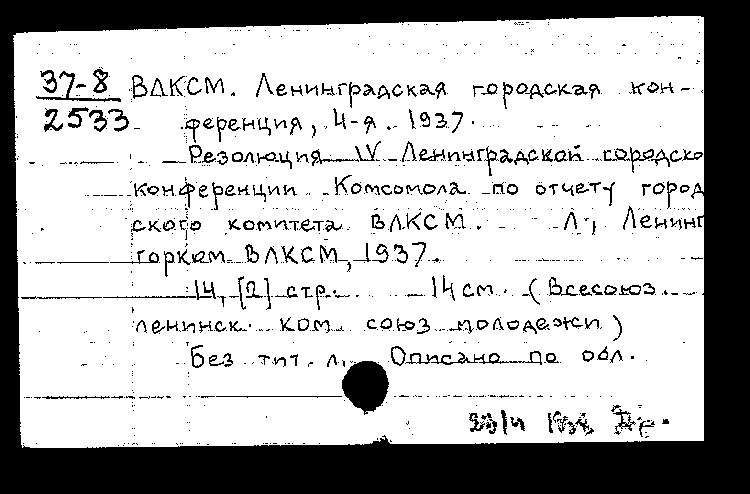 37-8 ВЛКСМ. Ленинградская городская кон-
2533 ференция, 4-я. 1937.
Резолюция IV Ленинградской городско
конференции Комсомола по отчету город
ского комитета ВЛКСМ. Л., Ленинг
горком ВЛКСМ, 1937.
14, [2] стр. 14 см. (Всесоюз.
ленинск. ком. союз молодежи)
Без тит. л. Описано по обл.